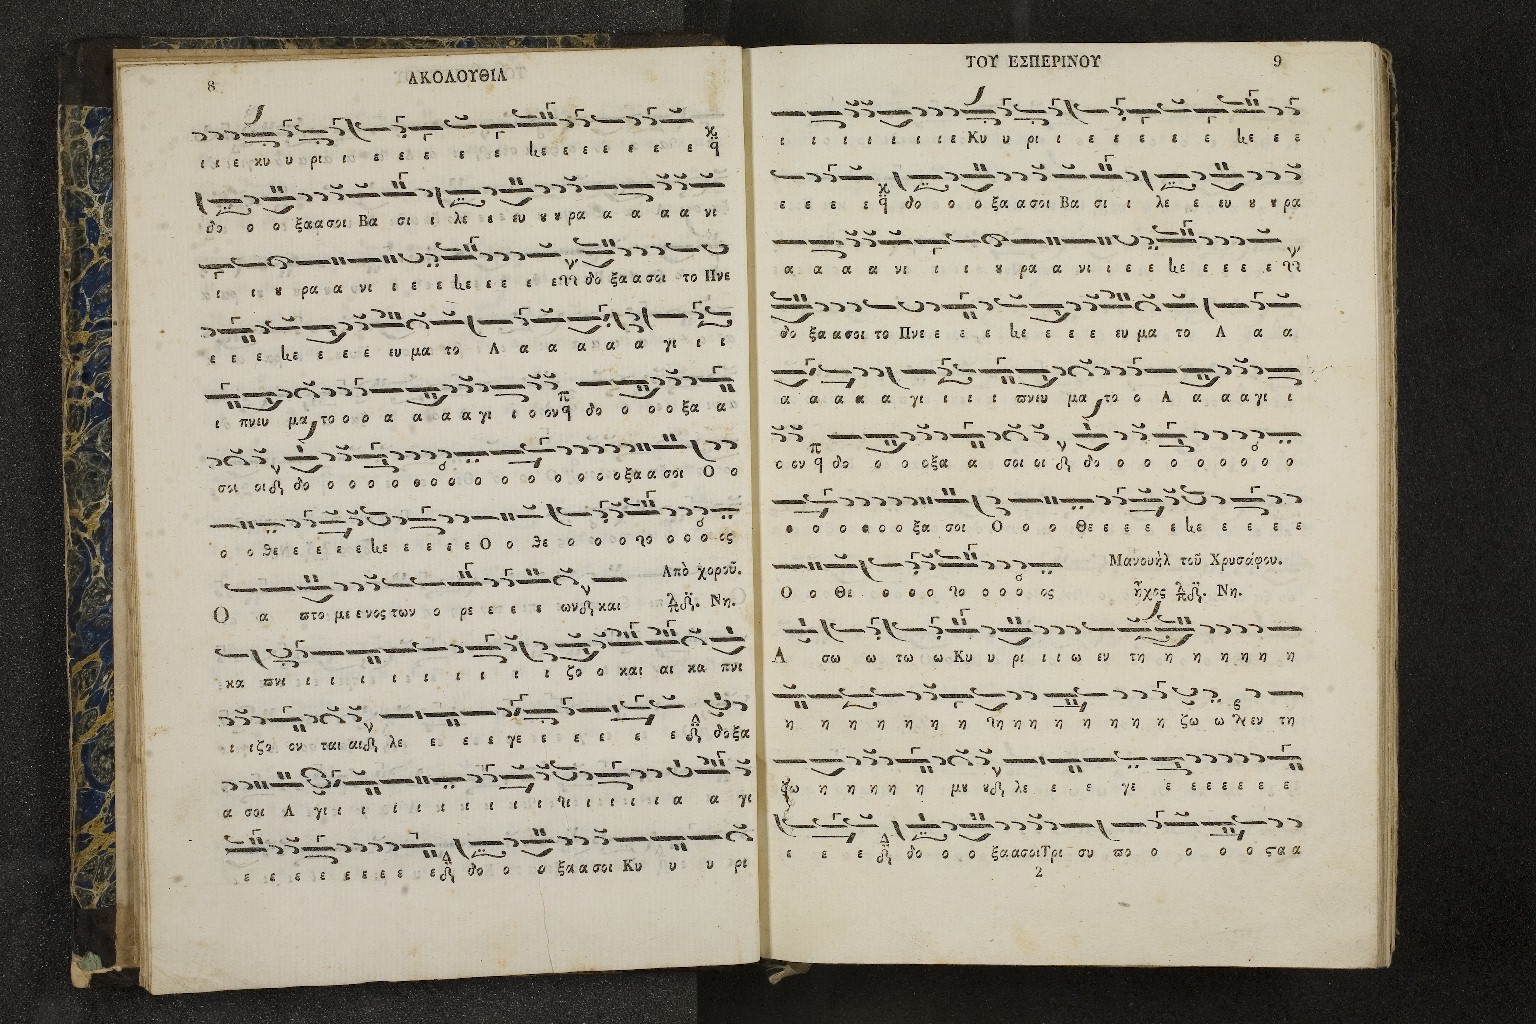 8
ΑΚΟΛΟΥΘΙΑ
ι ι ε κυ υ ρι ι ε ε ε ε ε ε με ε ε ε ε ε ε
δο ο ο ξα α σοι Βα σι ι λε ε ευ ȣ ȣ ρα α α α α νι
ι ι ȣ ρα α νι ι ε ε με ε ε ε ε δο ξα α σοι το Πνε
ε ε ε με ε ε ε ευ μα το Α α α α α α γι ι ι
ι πνευ μα το ο ο α α α α α γι ι ο ον δο ο ο ο ξα α
σοι οι δο ο ο ο ο ο ο ο ο ο ο ο ο ο ο ξα α σοι Ο ο
ο ο θε ε ε ε ε με ε ε ε ε Ο ο θε ο ο ο το ο ο ο ος
Ἀπὸ χοροῦ.
Ο α πτο με ε νος των ο ρε ε ε ε ων και Νη.
κα πνι ι ι ι ι ι ι ι ι ι ζο ο και αι κα πνι
ι ι ζο ον ται αι λε ε ε ε γε ε ε ε ε ε δο ξα
α σοι Α γι ι ι ι ι ι ι ι ι ι ι ι ι α α γι
ε ε ε ε ε ε ε ε ε δο ο ο ξα α σοι Κυ υ υ ρι
ΤΟΥ ΕΣΠΕΡΙΝΟΥ
9
ι ι ι ι ι ι ι ε Κυ υ ρι ι ε ε ε ε ε με ε ε
ε ε ε ε δο ο ο ξα α σοι Βα σι ι λε ε ευ ȣ ȣ ρα
α α α α νι ι ι ȣ ρα α νι ι ε ε με ε ε ε ε
δο ξα α σοι το Πνε ε ε ε με ε ε ε ευ μα το Α α α
α α α α α γι ι ι ι πνευ μα το ο Α α α α γι ι
ο ον δο ο ο ο ξα α σοι οι δο ο ο ο ο ο ο ο ο
ο ο ο ο ο ο ξα σοι Ο ο ο Θε ε ε ε ε με ε ε ε ε
Μανουὴλ τοῦ Χρυσάφου.
Ο ο Θε ο ο ο το ο ο ο ος ἦχος Νη.
Α σω ω τω ω Κυ υ ρι ι ι ω εν τη η η η η η η
η η η η η η η η η η η η η η ζω ω εν τη
ζω η η η η η μȣ ȣ λε ε ε ε γε ε ε ε ε ε ε
ε ε ε δο ο ο ξα α σοι Τρι συ πο ο ο ο ο ς α α
2